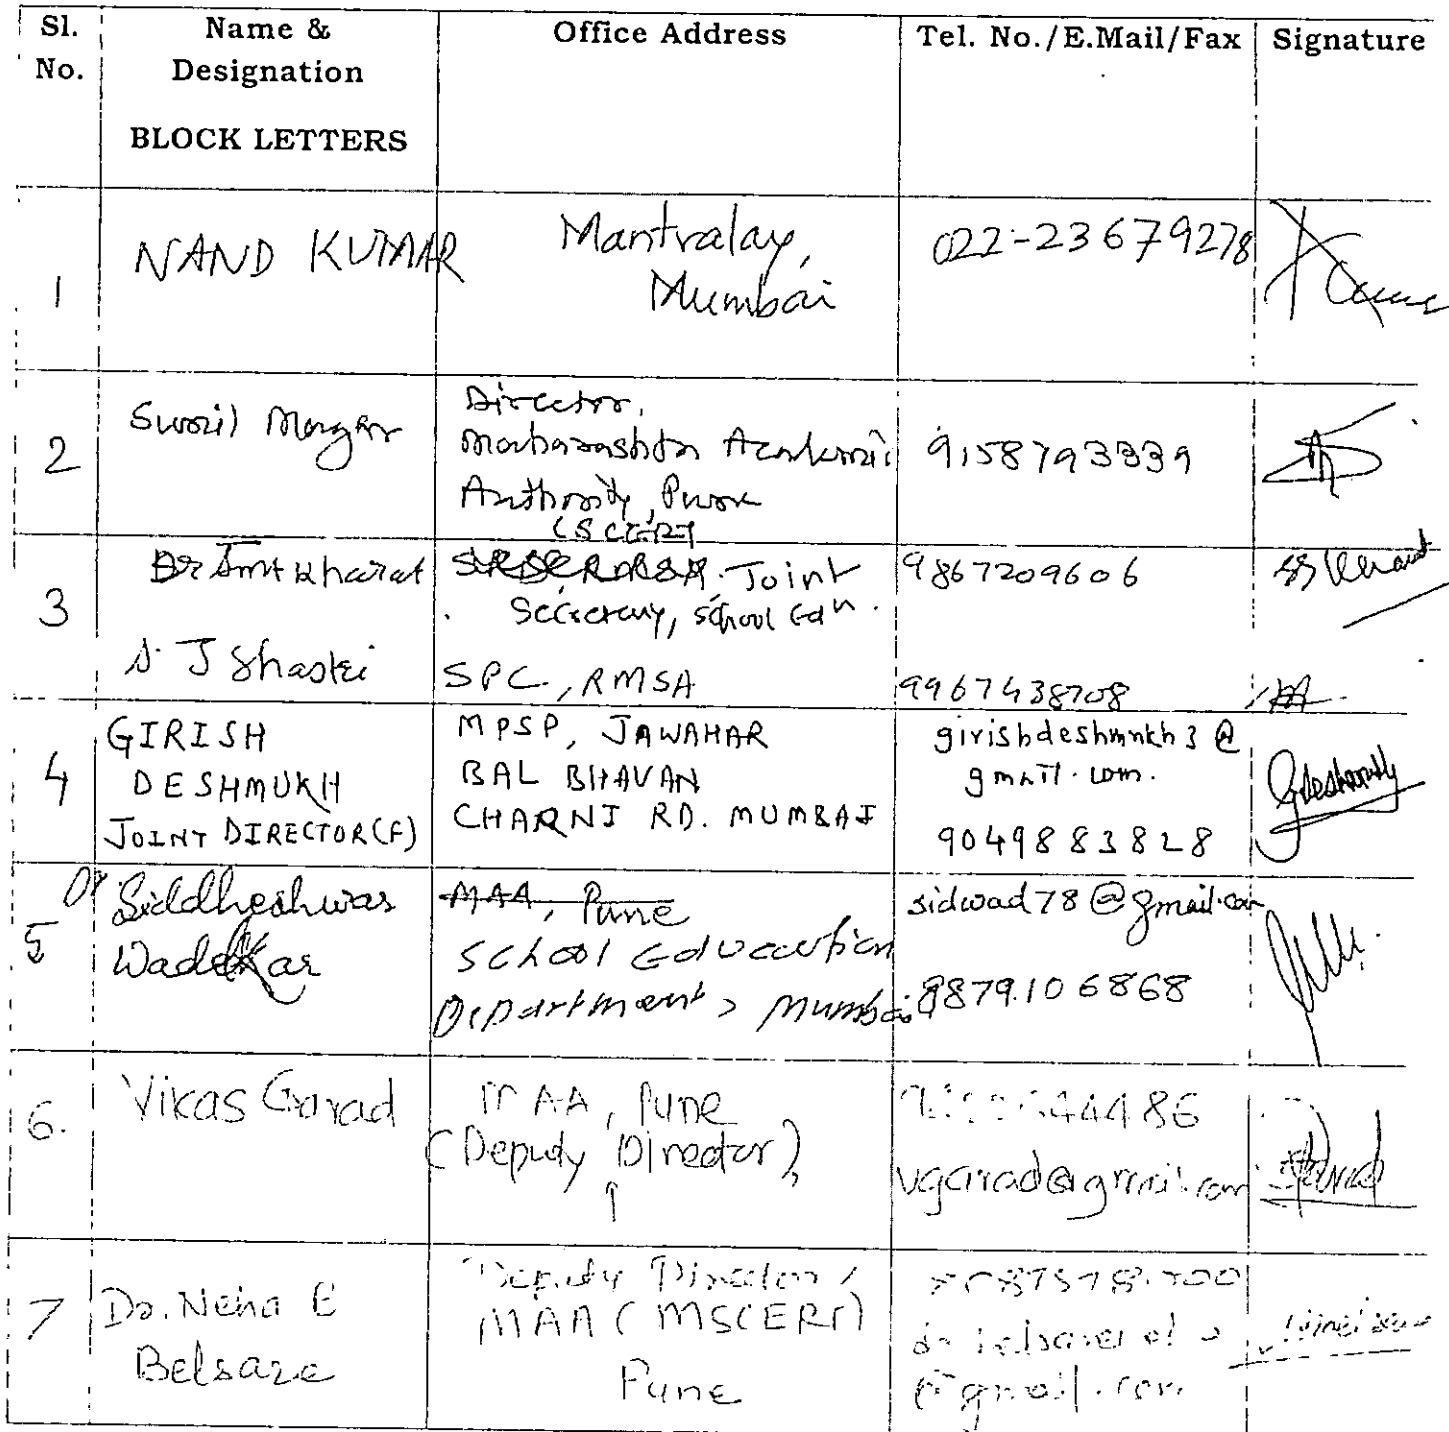 Sl. No. Name & Designation BLOCK LETTERS Office Address Tel. No./E.Mail/Fax Signature
1 NAND KUMAR Mantralay, Mumbai 022-23679278
2 Director, Authority, Pune (SCERT) 9158793339
3 Dr Smt Kharat Joint Secretary, School Edn. 9867209606
S. J Shastri SPC., RMSA 9967438708
4 GIRISH DESHMUKH JOINT DIRECTOR(F) MPSP, JAWAHAR BAL BHAVAN CHARNI RD. MUMBAI girishdeshmukh3@ gmail.com. 9049883828
5 Dr Siddheshwar Wadekar MAA, Pune School Education Department, Mumbai sidwad78@gmail.com 9879106868
6. Vikas Garad MAA, Pune (Deputy Director) vgarad@gmail.com
7 Dr. Neha E Belsare Deputy Director, MAA (MSCERT) Pune @gmail.com